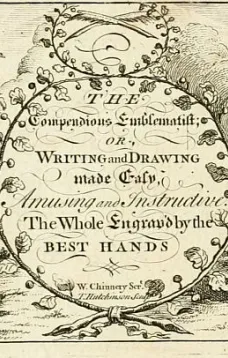 THE
Compendious Emblematist;
OR,
WRITING and DRAWING
made Easy,
Amusing and Instructive.
The Whole Engrav'd by the
BEST HANDS
W. Chinnery Scr.
T. Hutchinson Sculp